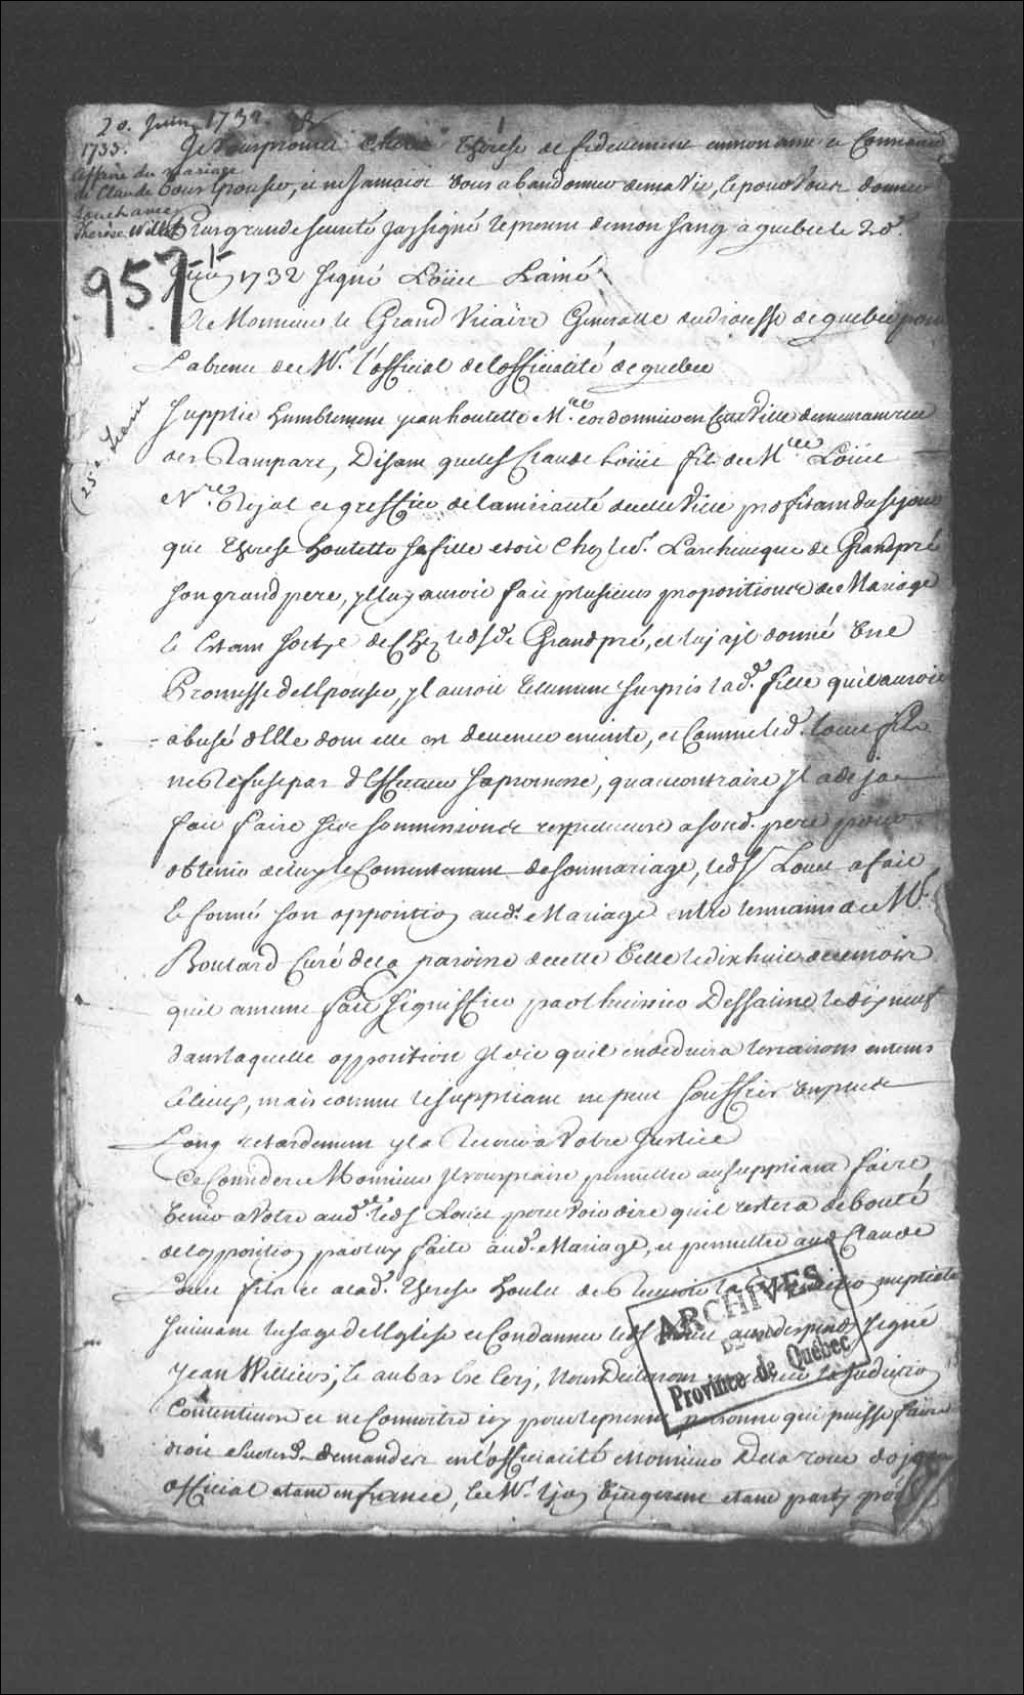 20. Juin 1732.
1733.
Affaire du mariage
de Claude
Thérèse Willet
957
-1-
Je vous promet Cherie Therese de fidellement
vous Epouser, et ne Jamais vous abandonner de ma vie, Et pour vous donner
Plus grande seureté Jay signé le present de mon sang a quebec le 20e.
Juin 1732 signé Loüet Lainé
A Monsieur le Grand Vicaire Generalle du diocesse de quebec pour
Labsence de Mr. l'official de lofficialité de quebec
Supplie humblement jean houllette Me. cordonnier en Cette Ville demeurant rue
des Rampars, Disant que le sr Claude Loüet fils de Me Loüet
Nre. Royal et greffier de lamirauté de cette Ville profitant du sejour
que Therese houllette sa fille etoit Chez led. Larcheveque de Grandpré
son grand pere, il luy auroit fait plusieurs propositions de Mariage
Et Estant sortye de Chez led. sr de Grandpré, et luy ayt donné Une
Promesse dEpouser, yl auroit tellement surpris lad. fille quil auroit
abusé dElle dont elle est devenue enceinte, et Comme led. Loüet fils
ne Refuse pas dEffectuer sa promesse, qu'au contraire yl a deja
fait faire des sommissions respectueuse a sond. pere pour
obtenir de luy le Consentement de son mariage, led. sr Loüet a fait
Et formé son opposition aud. Mariage entre les mains de Mr
Boulard Curé de la paroisse de cette Ville le dix huit de ce mois
quil a mesme fait signiffier par lhuissier Dessaline le dix neuf
dans laquelle opposition yl dit quil en deduira les raisons en tems
& lieux, mais comme le suppliant ne peut souffrir un plus
Long retardement yl a Recours a Votre Justice
Ce Considere Monsieur Il vous plaise permettre au suppliant faire
Venir a Votre aud.ce led. sr Loüet pour voir dire quil restera debouté
de lopposition par luy faite aud. Mariage, et permettre aud Claude
Loüet fils et a lad. Therese houlet de Recevoir la Benediction nuptiale
suivant lusage de lEglise et Condanner led. sr Loüet aux depens signé
ARCHIVES
DE LA
Province de Québec
Contentieuse et ne Connoitre icy pour le present personne qui puisse faire
droit demander en l'officialité Monsieur De la Tour doyen
official etant en france, et Mr. Lyon etant party pour